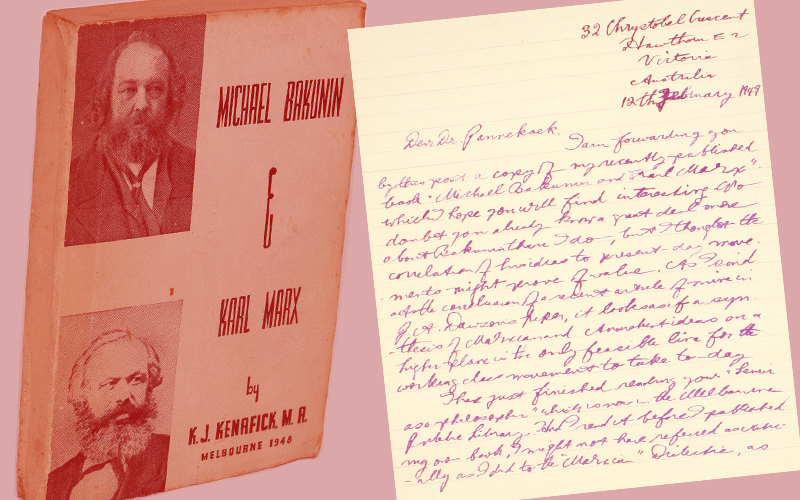 MICHAEL BAKUNIN
&
KARL MARX
by
K. J. KENAFICK, M. A.
MELBOURNE 1948
32 Chrystobel Crescent
Hawthorn E 2
Victoria
Australia
12th February 1949
Dear Dr. Pannekoek,
I am forwarding you
by this post a copy of my recently published
book "Michael Bakunin and Karl Marx".
which I hope you will find interesting. No
doubt you already know a great deal more
about Bakunin than I do, but I thought the
correlation of his ideas to present-day move-
ments might prove of value. As I said
at the conclusion of a recent article of mine in
J. A. Dawson's paper, it looks as if a syn-
thesis of Marxian and Anarchist ideas on a
higher plane is the only feasible line for the
working class movement to take to-day
I have just finished reading your "Lenin
as a philosopher" which is now in the Melbourne
Public Library. Had I read it before I published
my own book, I might not have referred so
-ally as I did to the "Marxian" Dialectic, as